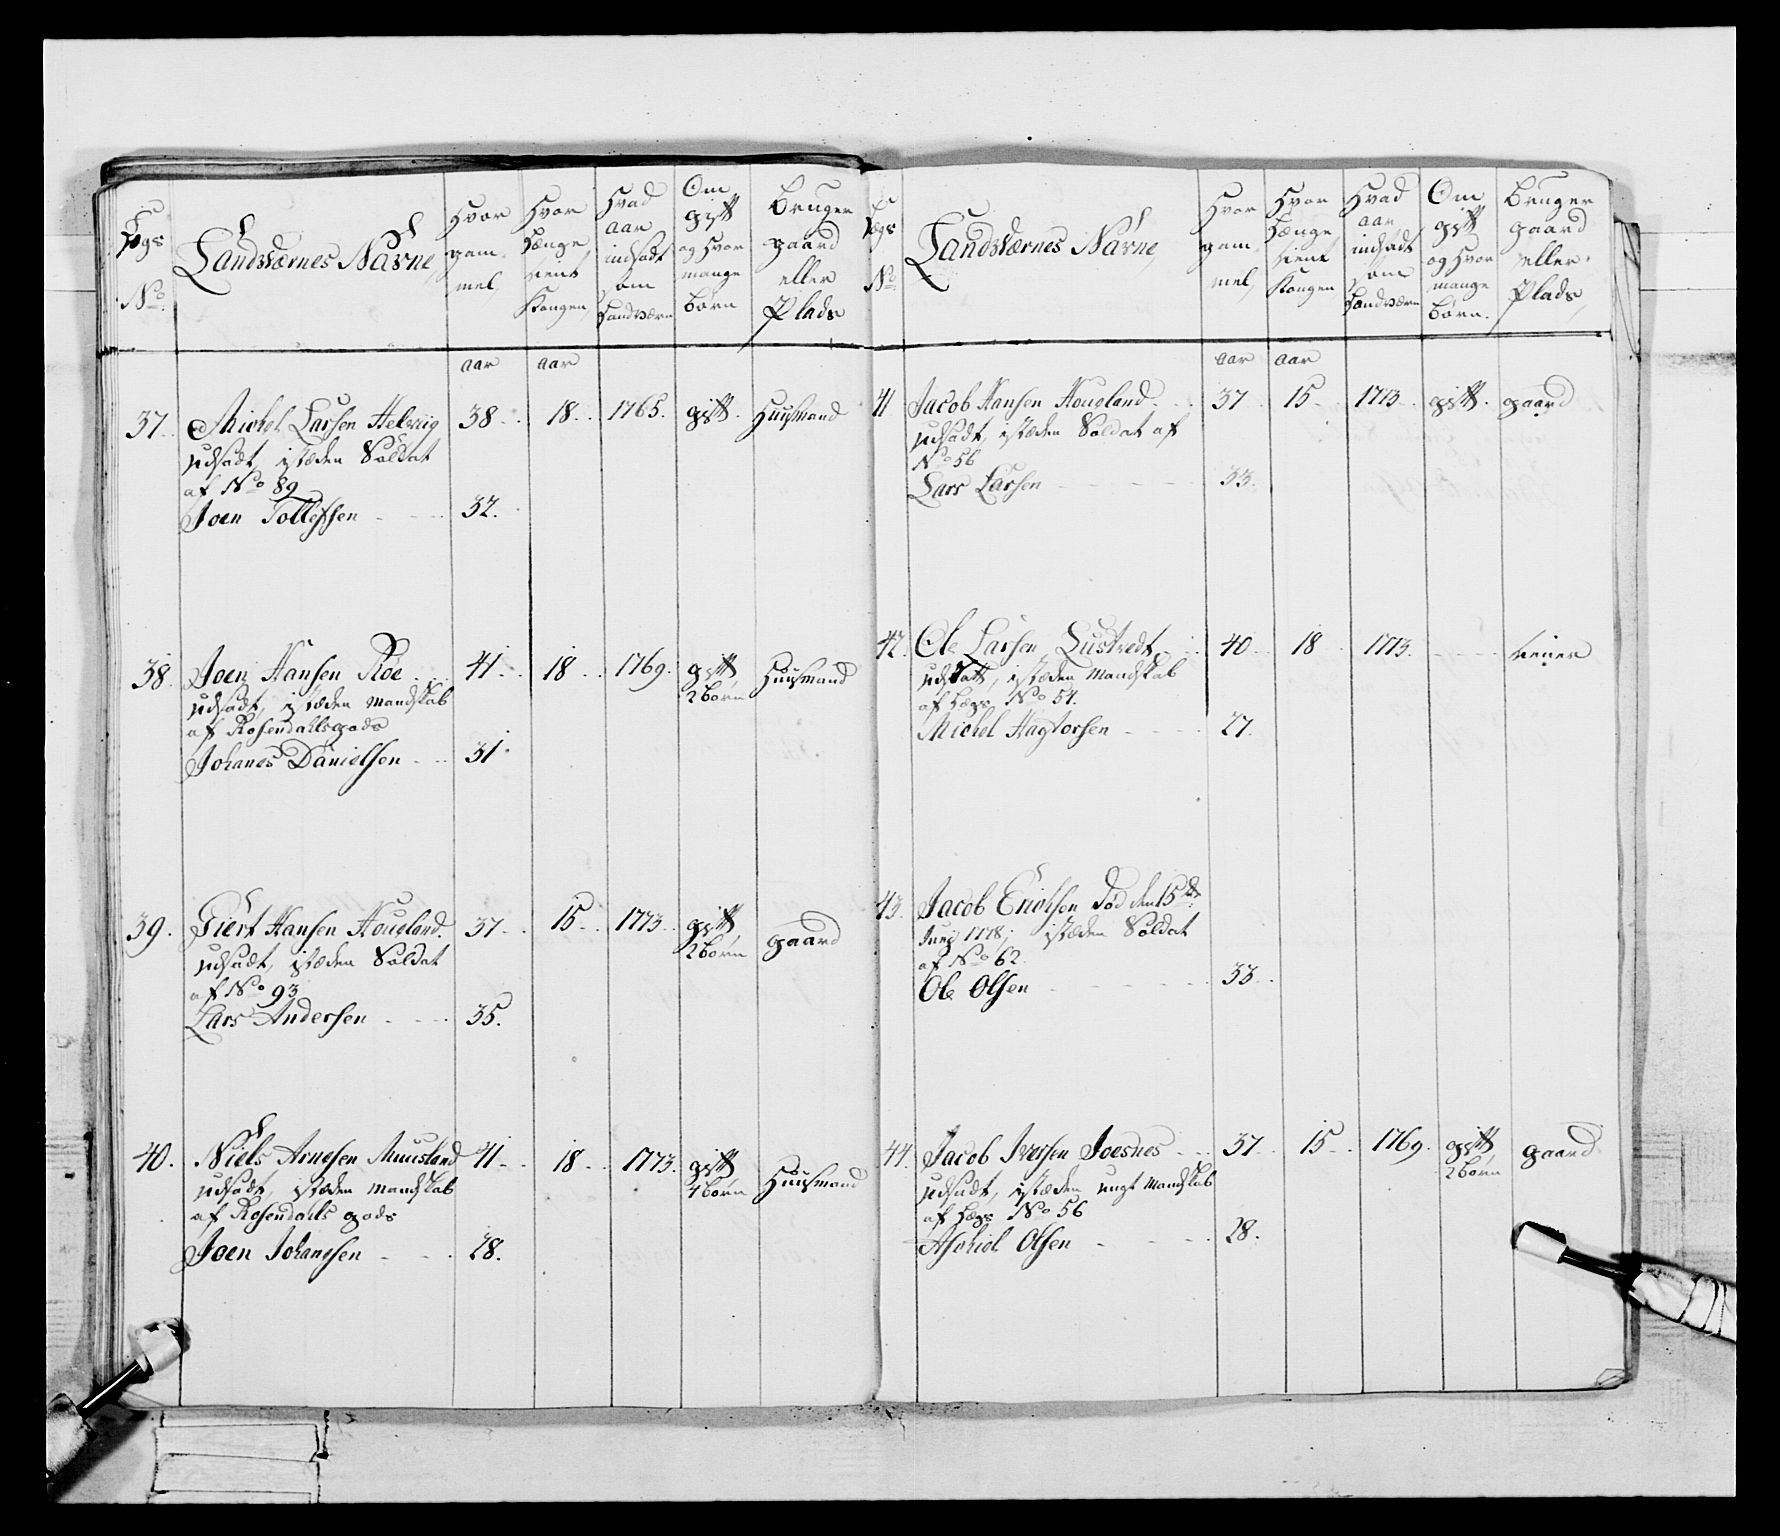 Lægs
No.
Landværnes Navne,
Hvor
gam-
mel
Hvor
Længe
tient
Kongen,
Hvad
aar
indsadt
som
Landværn
Om
gift
og hvor
mange
børn
Bruger
gaard
eller
Plads
aar aar
37. Michel Larsen Helvig 38. 18. 1765. gift. Huusmand
udsadt, isteden Soldat
af No 89
Joen Tollefsen 32.
38. Joen Hansen Roe 41. 18. 1769. gift Huusmand
udsadt, isteden Mandskab 2 børn
af Rosendahlsgods
Johanes Danielsen 31.
39. Giert Hansen Houeland. 37. 15. 1773. gift, gaard
udsadt, isteden Soldat 2 børn
af No 93
Lars Andersen 35.
40. Niels Arnesen Muusland 41. 18. 1773. gift Huusmand
udsadt, isteden Mandskab 4 børn
af Rosendahls gods
Joen Johansen 28.
Lægs
No.
Landværnes Navne
Hvor
gam-
mel,
Hvor
Længe
tient
Kongen
Hvad
aar
indsadt
som
Landværn
Om
gift
og hvor
mange
børn.
Bruger
gaard
eller
Plads,
aar aar
41 Jacob Hansen Houeland. 37. 15. 1773. gift. gaard
udsadt, isteden Soldat af
No 56
Lars Larsen 33.
42. Ole Larsen Lustvedt, 40. 18. 1773. tiener
udsatt, isteden Mandskab
af Lægs No 54.
Michel Hagtorsen 27.
43. Jacob Erichsen død den 15de
Junij 1778, isteden Soldat
af No 62.
Ole Olsen 33.
44. Jacob Iversen Joesnes 37. 15. 1769. gift gaard
udsadt, isteden ungt Mandskab 2 børn
af Lægs No 56
Aschiel Olsen 28.